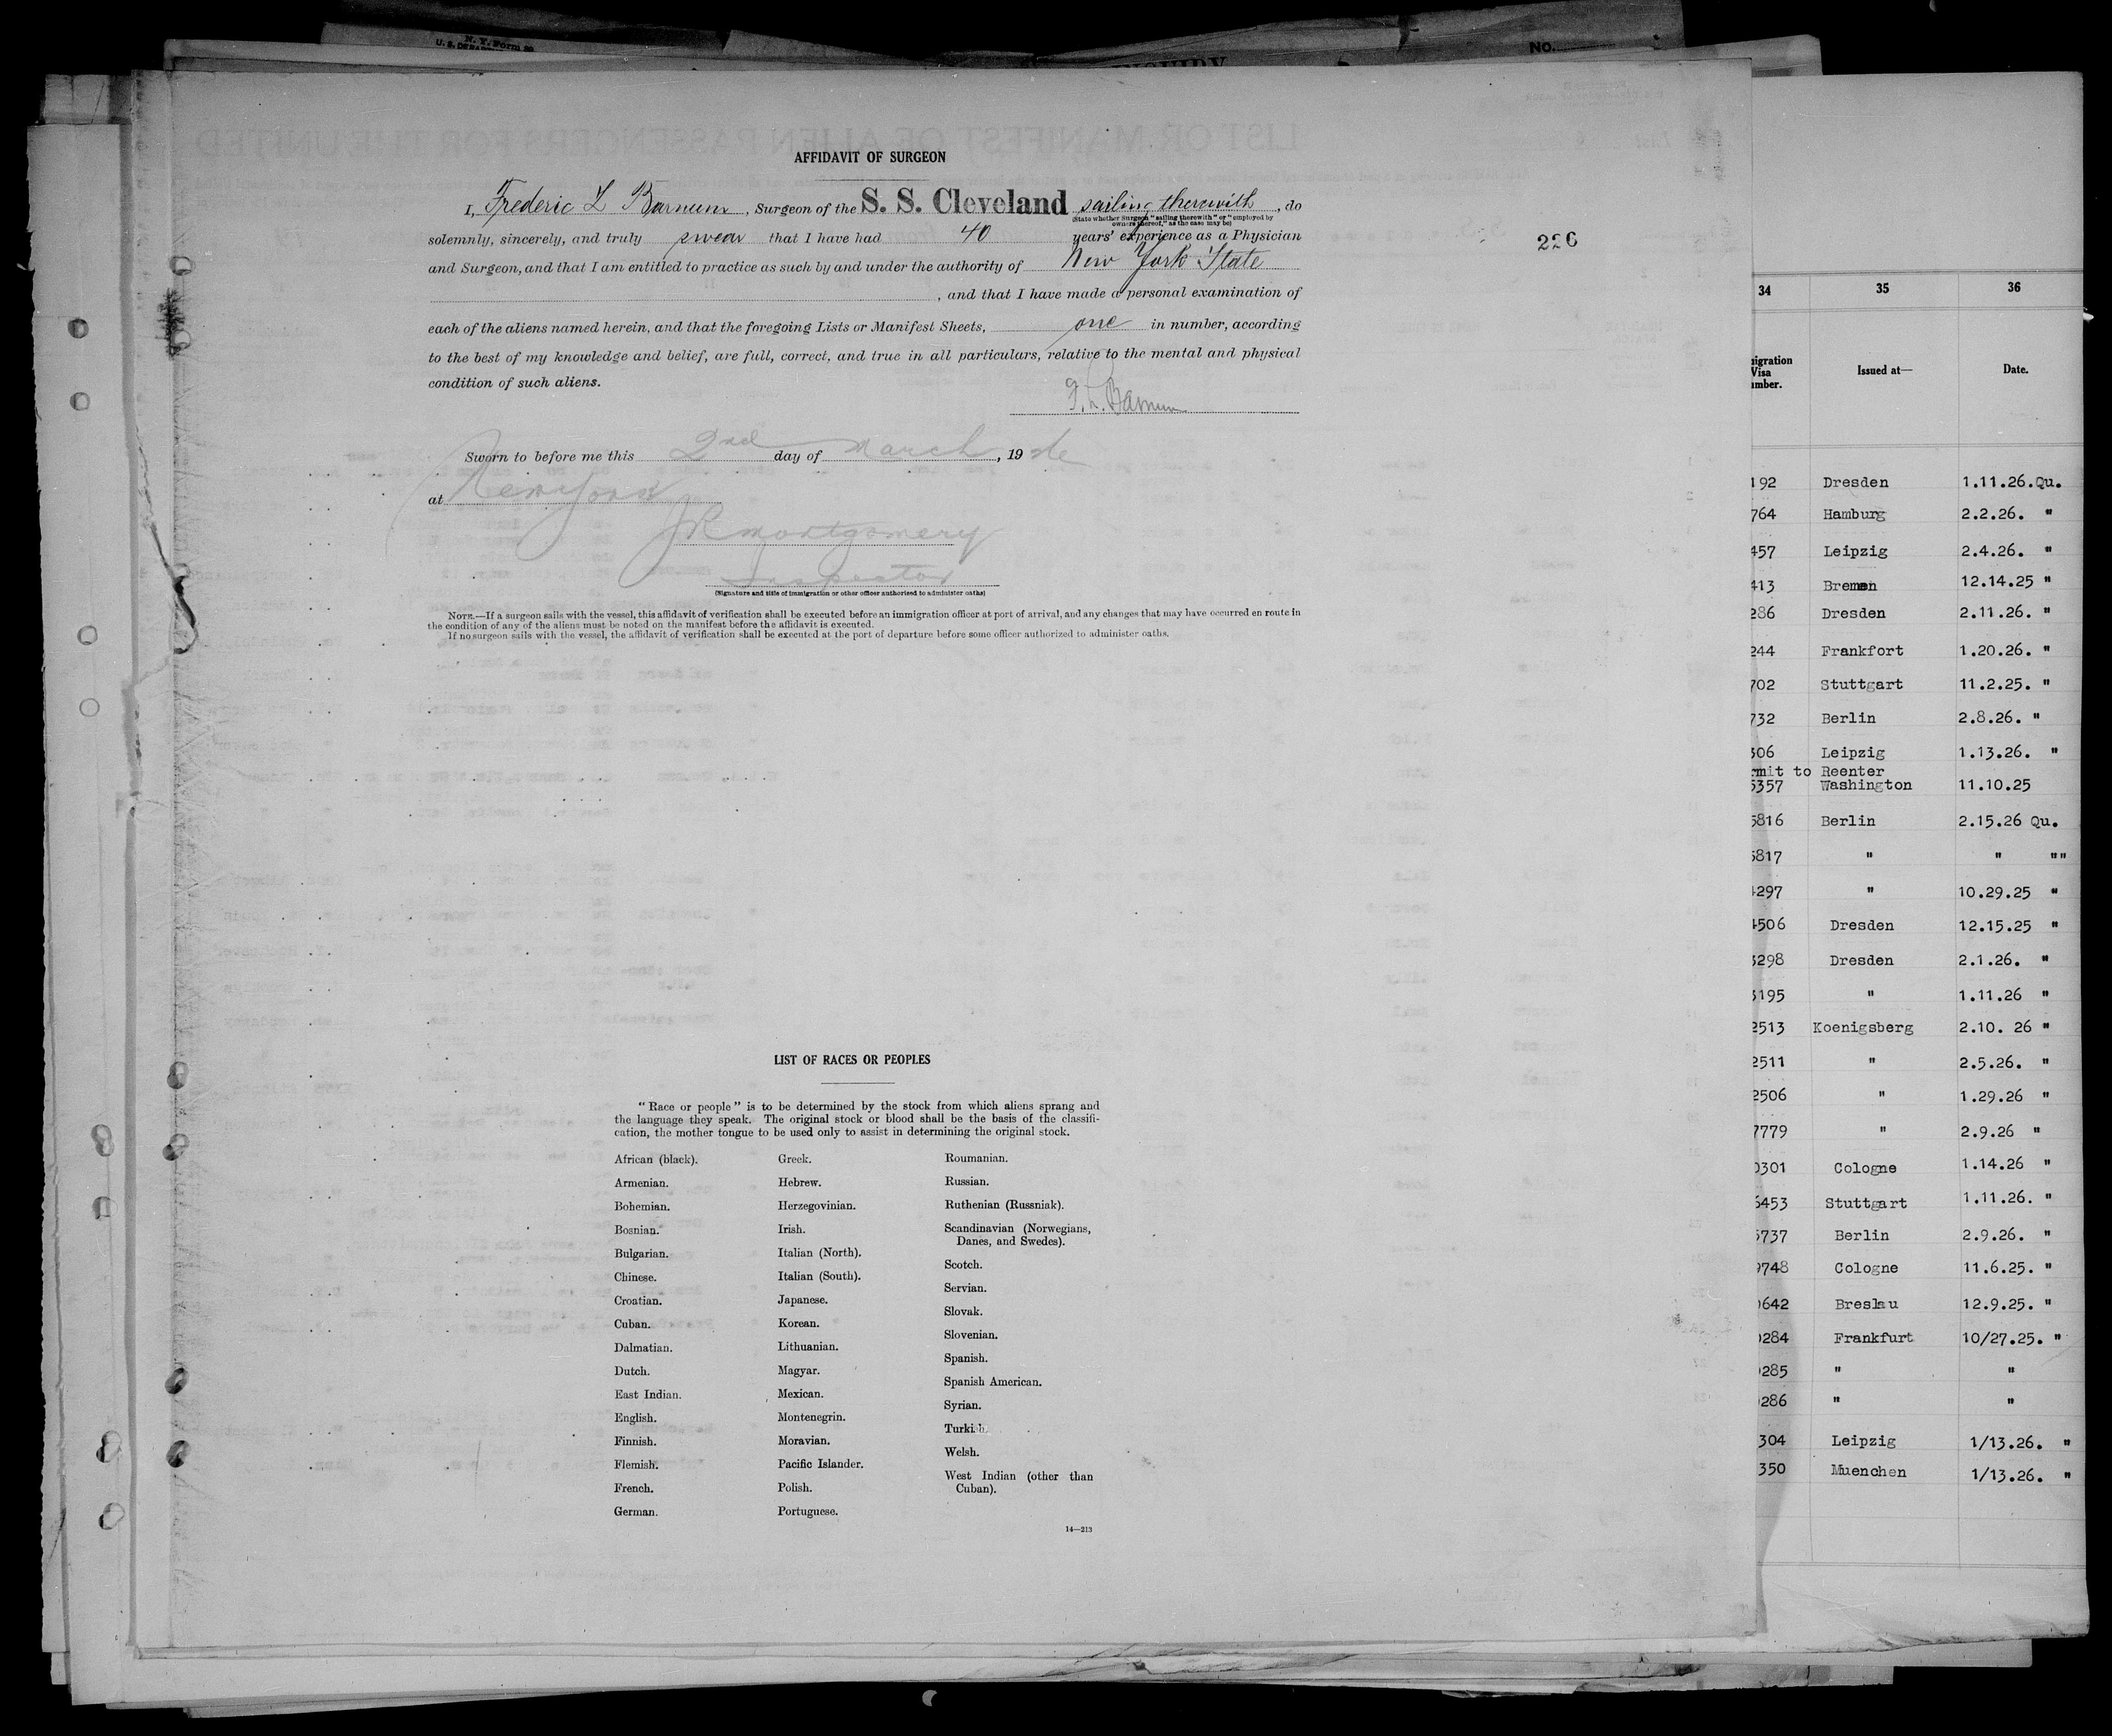 N. Y. Form 99
No.
AFFIDAVIT OF SURGEON
I, Frederic L Barnum, Surgeon of the S. S. Cleveland sailing therewith, do
(State whether Surgeon "sailing therewith" or "employed by
owners thereof," as the case may be)
solemnly, sincerely, and truly swear that I have had 40 years' experience as a Physician
226
and Surgeon, and that I am entitled to practice as such by and under the authority of New York State
, and that I have made a personal examination of
each of the aliens named herein, and that the foregoing Lists or Manifest Sheets, one in number, according
to the best of my knowledge and belief, are full, correct, and true in all particulars, relative to the mental and physical
condition of such aliens.
F. L. Barnum
Sworn to before me this 2nd day of March, 1926
at New York
JR Montgomery
Inspector
(Signature and title of immigration or other officer authorized to administer oaths)
NOTE.—If a surgeon sails with the vessel, this affidavit of verification shall be executed before an immigration officer at port of arrival, and any changes that may have occurred en route in
the condition of any of the aliens must be noted on the manifest before the affidavit is executed.
If no surgeon sails with the vessel, the affidavit of verification shall be executed at the port of departure before some officer authorized to administer oaths.
LIST OF RACES OR PEOPLES
"Race or people" is to be determined by the stock from which aliens sprang and
the language they speak. The original stock or blood shall be the basis of the classifi-
cation, the mother tongue to be used only to assist in determining the original stock.
African (black).
Armenian.
Bohemian.
Bosnian.
Bulgarian.
Chinese.
Croatian.
Cuban.
Dalmatian.
Dutch.
East Indian.
English.
Finnish.
Flemish.
French.
German.
Greek.
Hebrew.
Herzegovinian.
Irish.
Italian (North).
Italian (South).
Japanese.
Korean.
Lithuanian.
Magyar.
Mexican.
Montenegrin.
Moravian.
Pacific Islander.
Polish.
Portuguese.
Roumanian.
Russian.
Ruthenian (Russniak).
Scandinavian (Norwegians,
Danes, and Swedes).
Scotch.
Servian.
Slovak.
Slovenian.
Spanish.
Spanish American.
Syrian.
Turkish.
Welsh.
West Indian (other than
Cuban).
14—213
34 35 36
Issued at— Date.
Visa
192 Dresden 1.11.26.Qu.
764 Hamburg 2.2.26. "
457 Leipzig 2.4.26. "
413 Bremen 12.14.25 "
286 Dresden 2.11.26. "
244 Frankfort 1.20.26. "
702 Stuttgart 11.2.25. "
732 Berlin 2.8.26. "
306 Leipzig 1.13.26. "
rmit to Reenter
5357 Washington 11.10.25
5816 Berlin 2.15.26 Qu.
5817 " " ""
4297 " 10.29.25 "
4506 Dresden 12.15.25 "
3298 Dresden 2.1.26. "
3195 " 1.11.26 "
2513 Koenigsberg 2.10. 26 "
2511 " 2.5.26. "
2506 " 1.29.26 "
7779 " 2.9.26 "
0301 Cologne 1.14.26 "
6453 Stuttgart 1.11.26. "
5737 Berlin 2.9.26. "
9748 Cologne 11.6.25. "
642 Breslau 12.9.25. "
284 Frankfurt 10/27.25. "
285 " "
286 " "
304 Leipzig 1/13.26. "
350 Muenchen 1/13.26. "